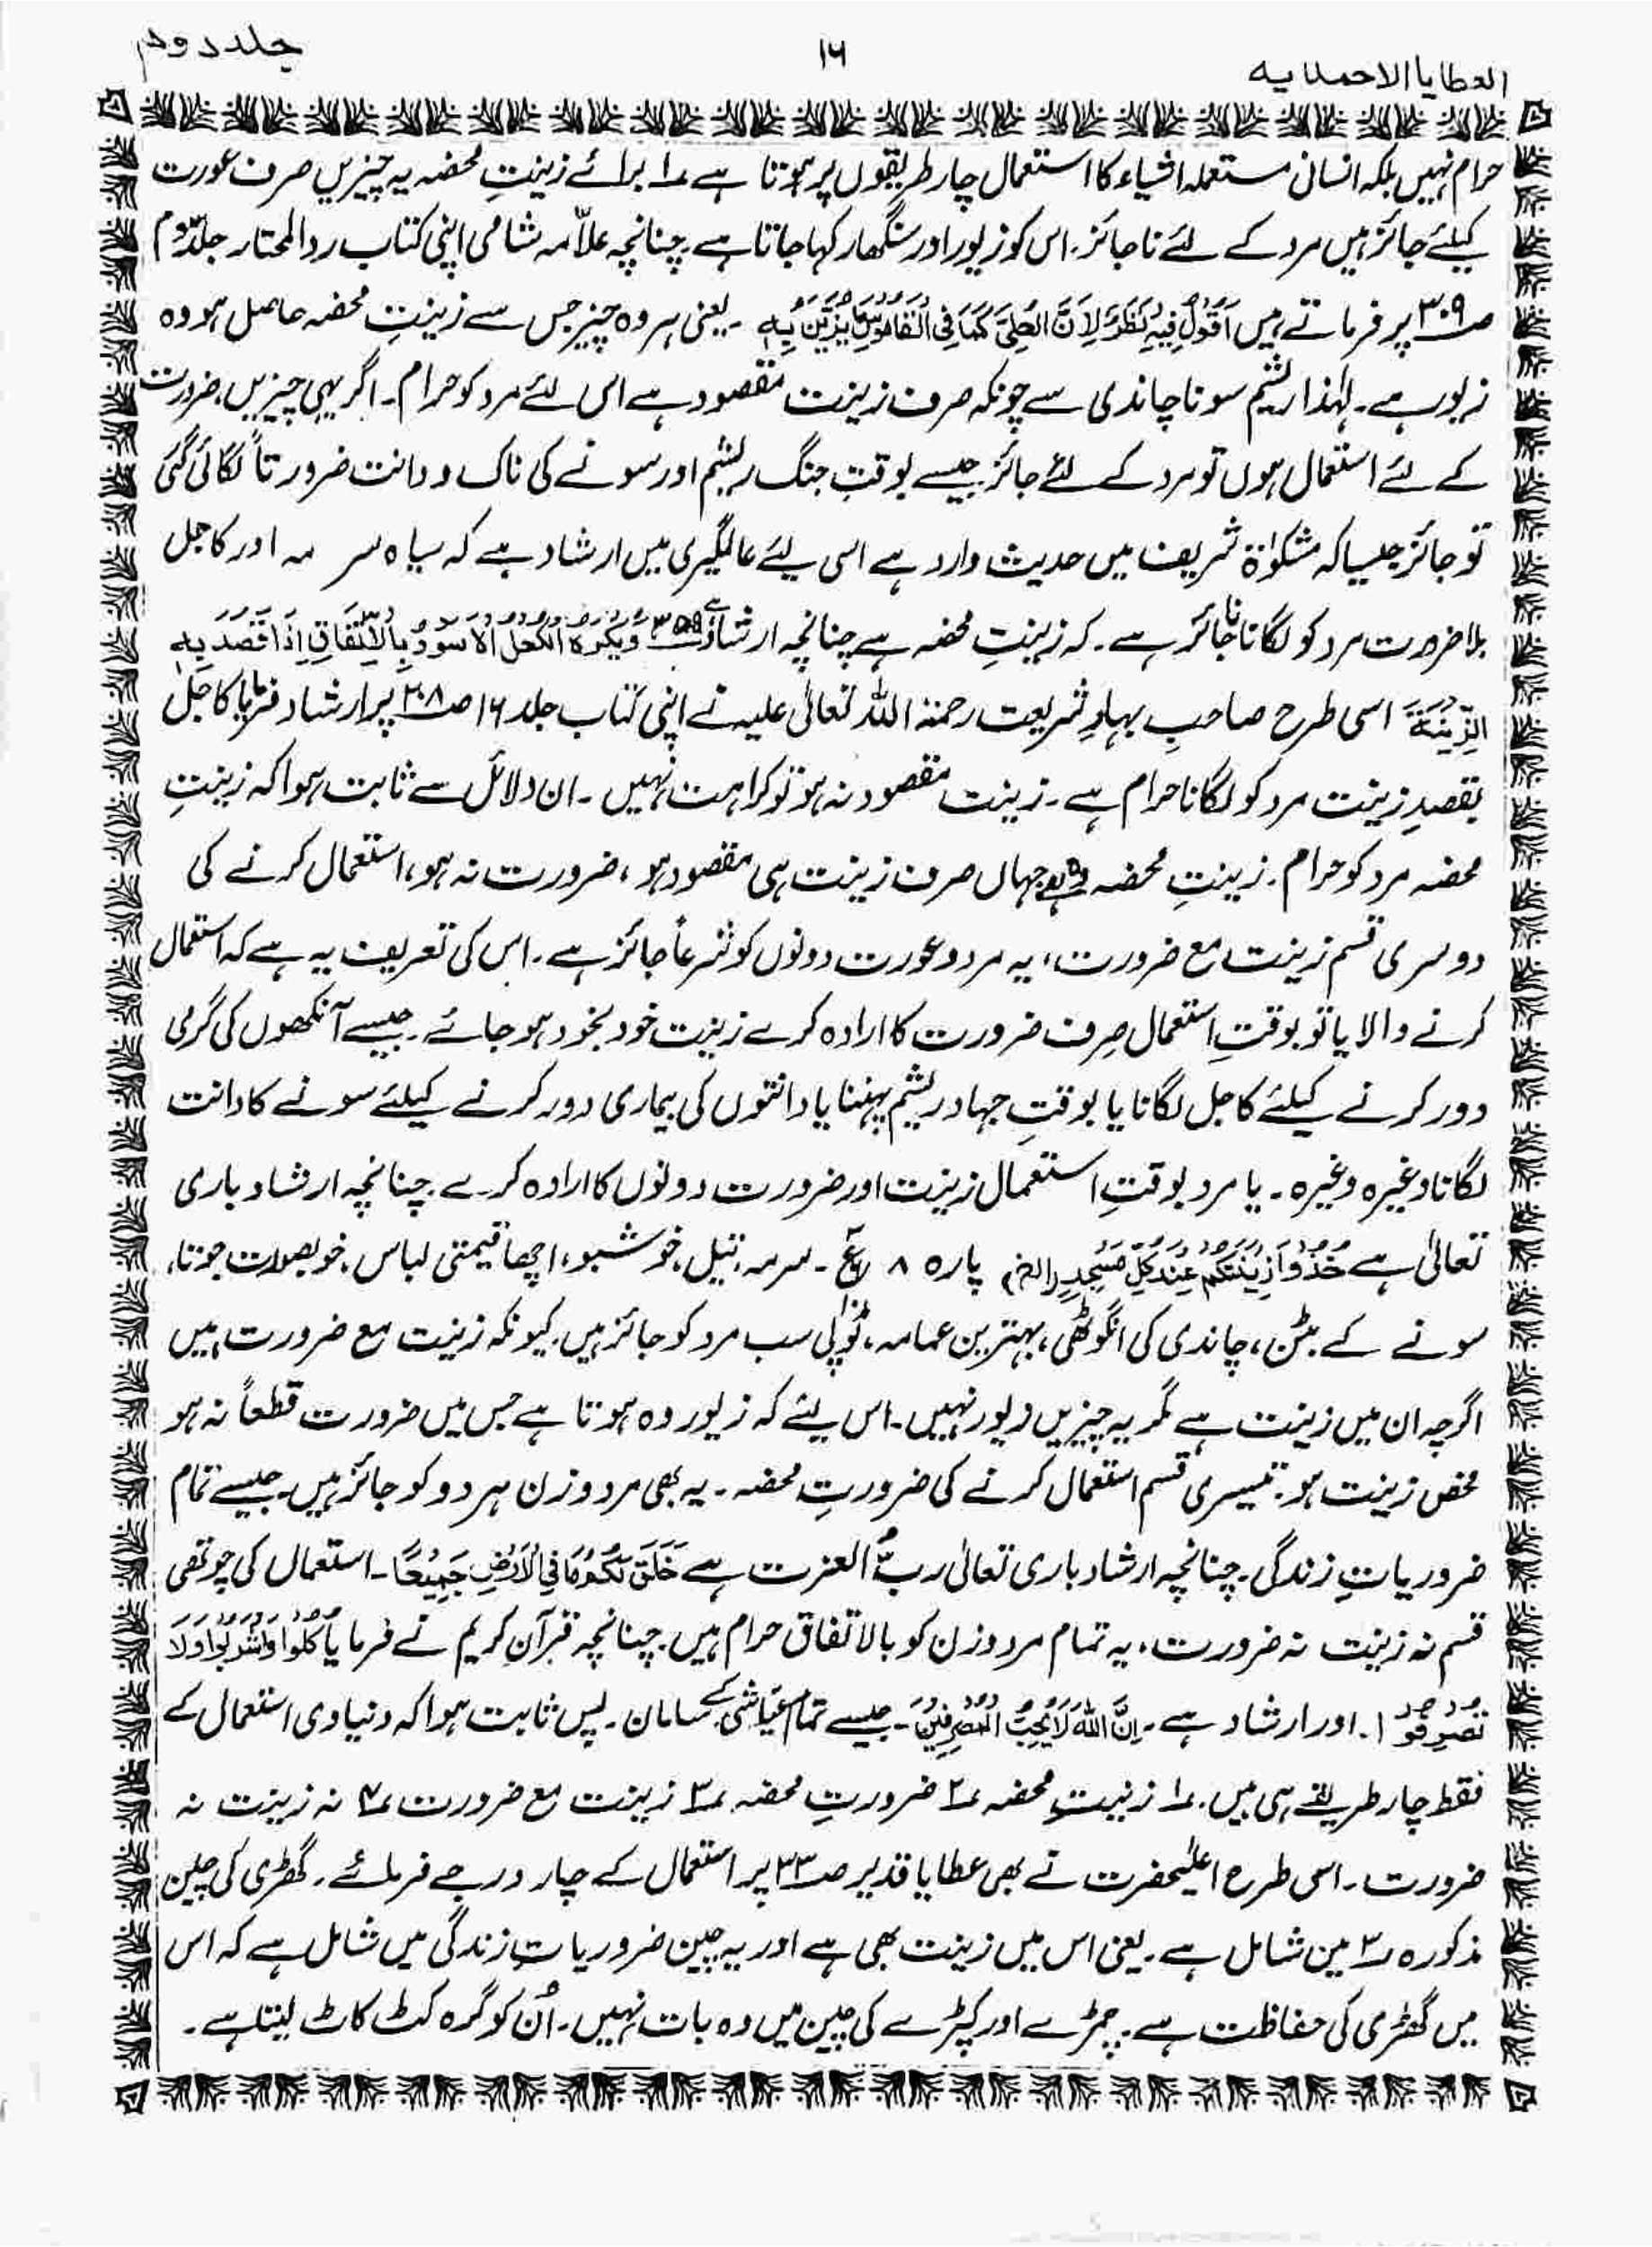 جلد دوم
۱۶
العطایا الاحمدیہ
حرام نہیں بلکہ انسانی مستعملہ اشیاء کا استعمال چار طریقوں پر ہوتا ہے ۱ برائے زینتِ محضہ یہ چیزیں صرف عورت
کیلئے جائز ہیں مرد کے لئے ناجائز۔ اس کو زیور اور سنگھار کہا جاتا ہے۔ چنانچہ علّامہ شامی اپنی کتاب ردالمحتار جلد دوم
صـ۳۰۹ پر فرماتے ہیں اَقُوْلُ فِیْہِ نَظَرٌ لِاَنَّ الحُلِیَّ کَمَا فِی الْقَامُوْسِ مَا یُزَیَّنُ بِہٖ ۔ یعنی ہر وہ چیز جس سے زینتِ محضہ حاصل ہو وہ
زیور ہے۔ لہٰذا ریشم سونا چاندی سے چونکہ صرف زینت مقصود ہے اس لئے مرد کو حرام۔ اگر یہی چیزیں ضرورت
کے لئے استعمال ہوں تو مرد کے لئے جائز جیسے بوقتِ جنگ ریشم اور سونے کی ناک و دانت ضرورتاً لگائی گئی
تو جائز جیسا کہ مشکوٰۃ شریف میں حدیث وارد ہے اسی لئے عالمگیری میں ارشاد ہے کہ سیاہ سرمہ اور کاجل
بلا ضرورت مرد کو لگانا ناجائز ہے۔ کہ زینتِ محضہ ہے چنانچہ ارشاد ہے صـ۳۵۹ وَیُکْرَہُ الْکُحْلُ الْاَسْوَدُ بِالْاِتِّفَاقِ اِذَا قَصَدَ بِہٖ
الزِّیْنَۃَ اسی طرح صاحبِ بہارِ شریعت رحمۃ اللہ تعالٰی علیہ نے اپنی کتاب جلد ۱۶ صـ۲۰۸ پر ارشاد فرمایا کاجل
بقصدِ زینت مرد کو لگانا حرام ہے۔ زینت مقصود نہ ہو تو کراہت نہیں ۔ ان دلائل سے ثابت ہوا کہ زینتِ
محضہ مرد کو حرام۔ زینتِ محضہ وہ ہے جہاں صرف زینت ہی مقصود ہو ، ضرورت نہ ہو، استعمال کرنے کی
دوسری قسم زینت مع ضرورت، یہ مرد و عورت دونوں کو شرعاً جائز ہے۔ اس کی تعریف یہ ہے کہ استعمال
کرنے والا یا تو بوقتِ استعمال صِرف ضرورت کا ارادہ کرے زینت خود بخود ہو جائے ۔ جیسے آنکھوں کی گرمی
دور کرنے کیلئے کاجل لگانا یا بوقتِ جہاد ریشم پہننا یا دانتوں کی بیماری دور کرنے کیلئے سونے کا دانت
لگانا وغیرہ وغیرہ ۔ یا مرد بوقتِ استعمال زینت اور ضرورت دونوں کا ارادہ کرے ۔ چنانچہ ارشاد باری
تعالٰی ہے خُذُوْا زِیْنَتَکُمْ عِنْدَ کُلِّ مَسْجِدٍ (الخ) پارہ ۸ ۔ سرمہ، تیل، خوشبو، اچھا قیمتی لباس، خوبصورت جوتا،
سونے کے بٹن، چاندی کی انگوٹھی، بہترین عمامہ، ٹوپی سب مرد کو جائز ہیں۔ کیونکہ زینت مع ضرورت ہیں
اگرچہ ان میں زینت ہے مگر یہ چیزیں زیور نہیں ۔ اس لئے کہ زیور وہ ہوتا ہے جس میں ضرورت قطعاً نہ ہو
محض زینت ہو۔ تیسری قسم استعمال کرنے کی ضرورتِ محضہ ۔ یہ بھی مرد و زن ہر دو کو جائز ہیں۔ جیسے تمام
ضروریاتِ زندگی۔ چنانچہ ارشاد باری تعالٰی ربُّ العزت ہے خَلَقَ لَکُمْ مَا فِی الْاَرْضِ جَمِیْعًا ۔ استعمال کی چوتھی
قسم نہ زینت نہ ضرورت ، یہ تمام مرد و زن کو بالاتفاق حرام ہیں۔ چنانچہ قرآن کریم نے فرمایا کُلُوا وَاشْرَبُوا وَلَا
تُسْرِفُوْا ۔ اور ارشاد ہے ۔ اِنَّ اللّٰہَ لَا یُحِبُّ الْمُسْرِفِیْنَ ۔ جیسے تمام عیّاشی کے سامان ۔ پس ثابت ہوا کہ دنیاوی استعمال کے
فقط چار طریقے ہی ہیں ۔ ۱ زینتِ محضہ ۲ ضرورتِ محضہ ۳ زینت مع ضرورت ۴ نہ زینت نہ
ضرورت ۔ اسی طرح اعلیٰحضرت نے بھی عطایا قدیر صـ۲۳ پر استعمال کے چار درجے فرمائے ۔ گھڑی کی چین
مذکورہ ۳ میں شامل ہے ۔ یعنی اس میں زینت بھی ہے اور یہ چین ضروریاتِ زندگی میں شامل ہے کہ اس
میں گھڑی کی حفاظت ہے ۔ چمڑے اور کپڑے کی چین میں وہ بات نہیں ۔ اُن کو گرہ کٹ کاٹ لیتا ہے ۔